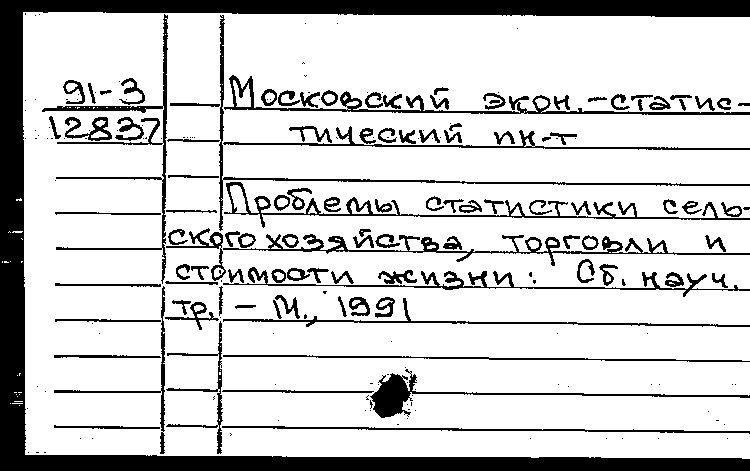 91-3 Московский экон.-статис-
12837 тический ин-т
Проблемы статистики сель-
ского хозяйства, торговли и
стоимости жизни: Сб. науч.
тр. - М., 1991